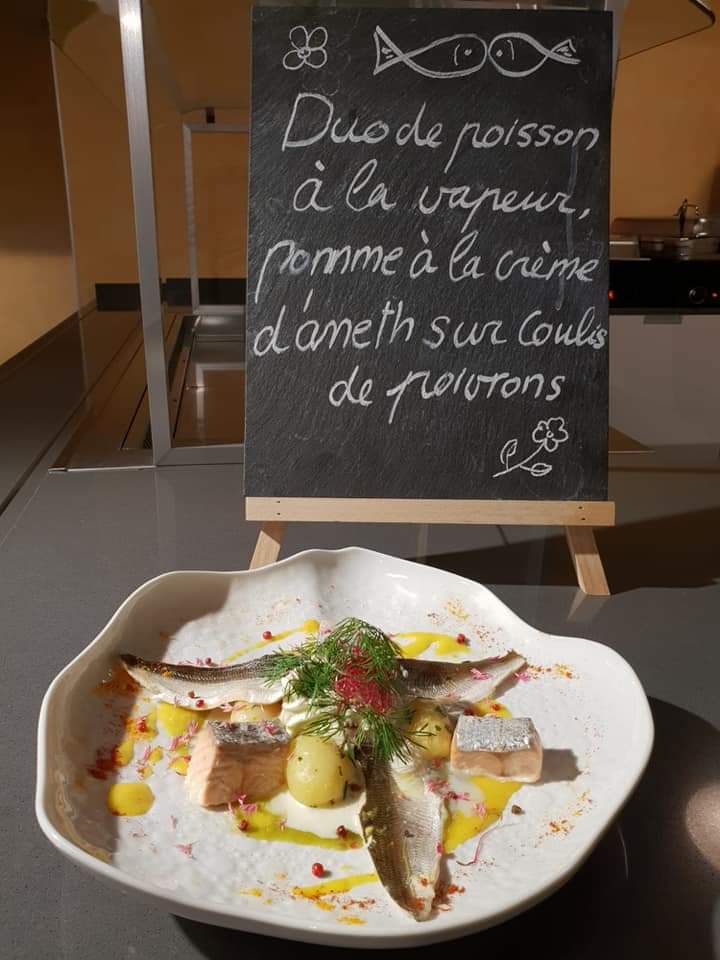 Duo de poisson
à la vapeur,
pomme à la crème
d'aneth sur Coulis
de poivrons